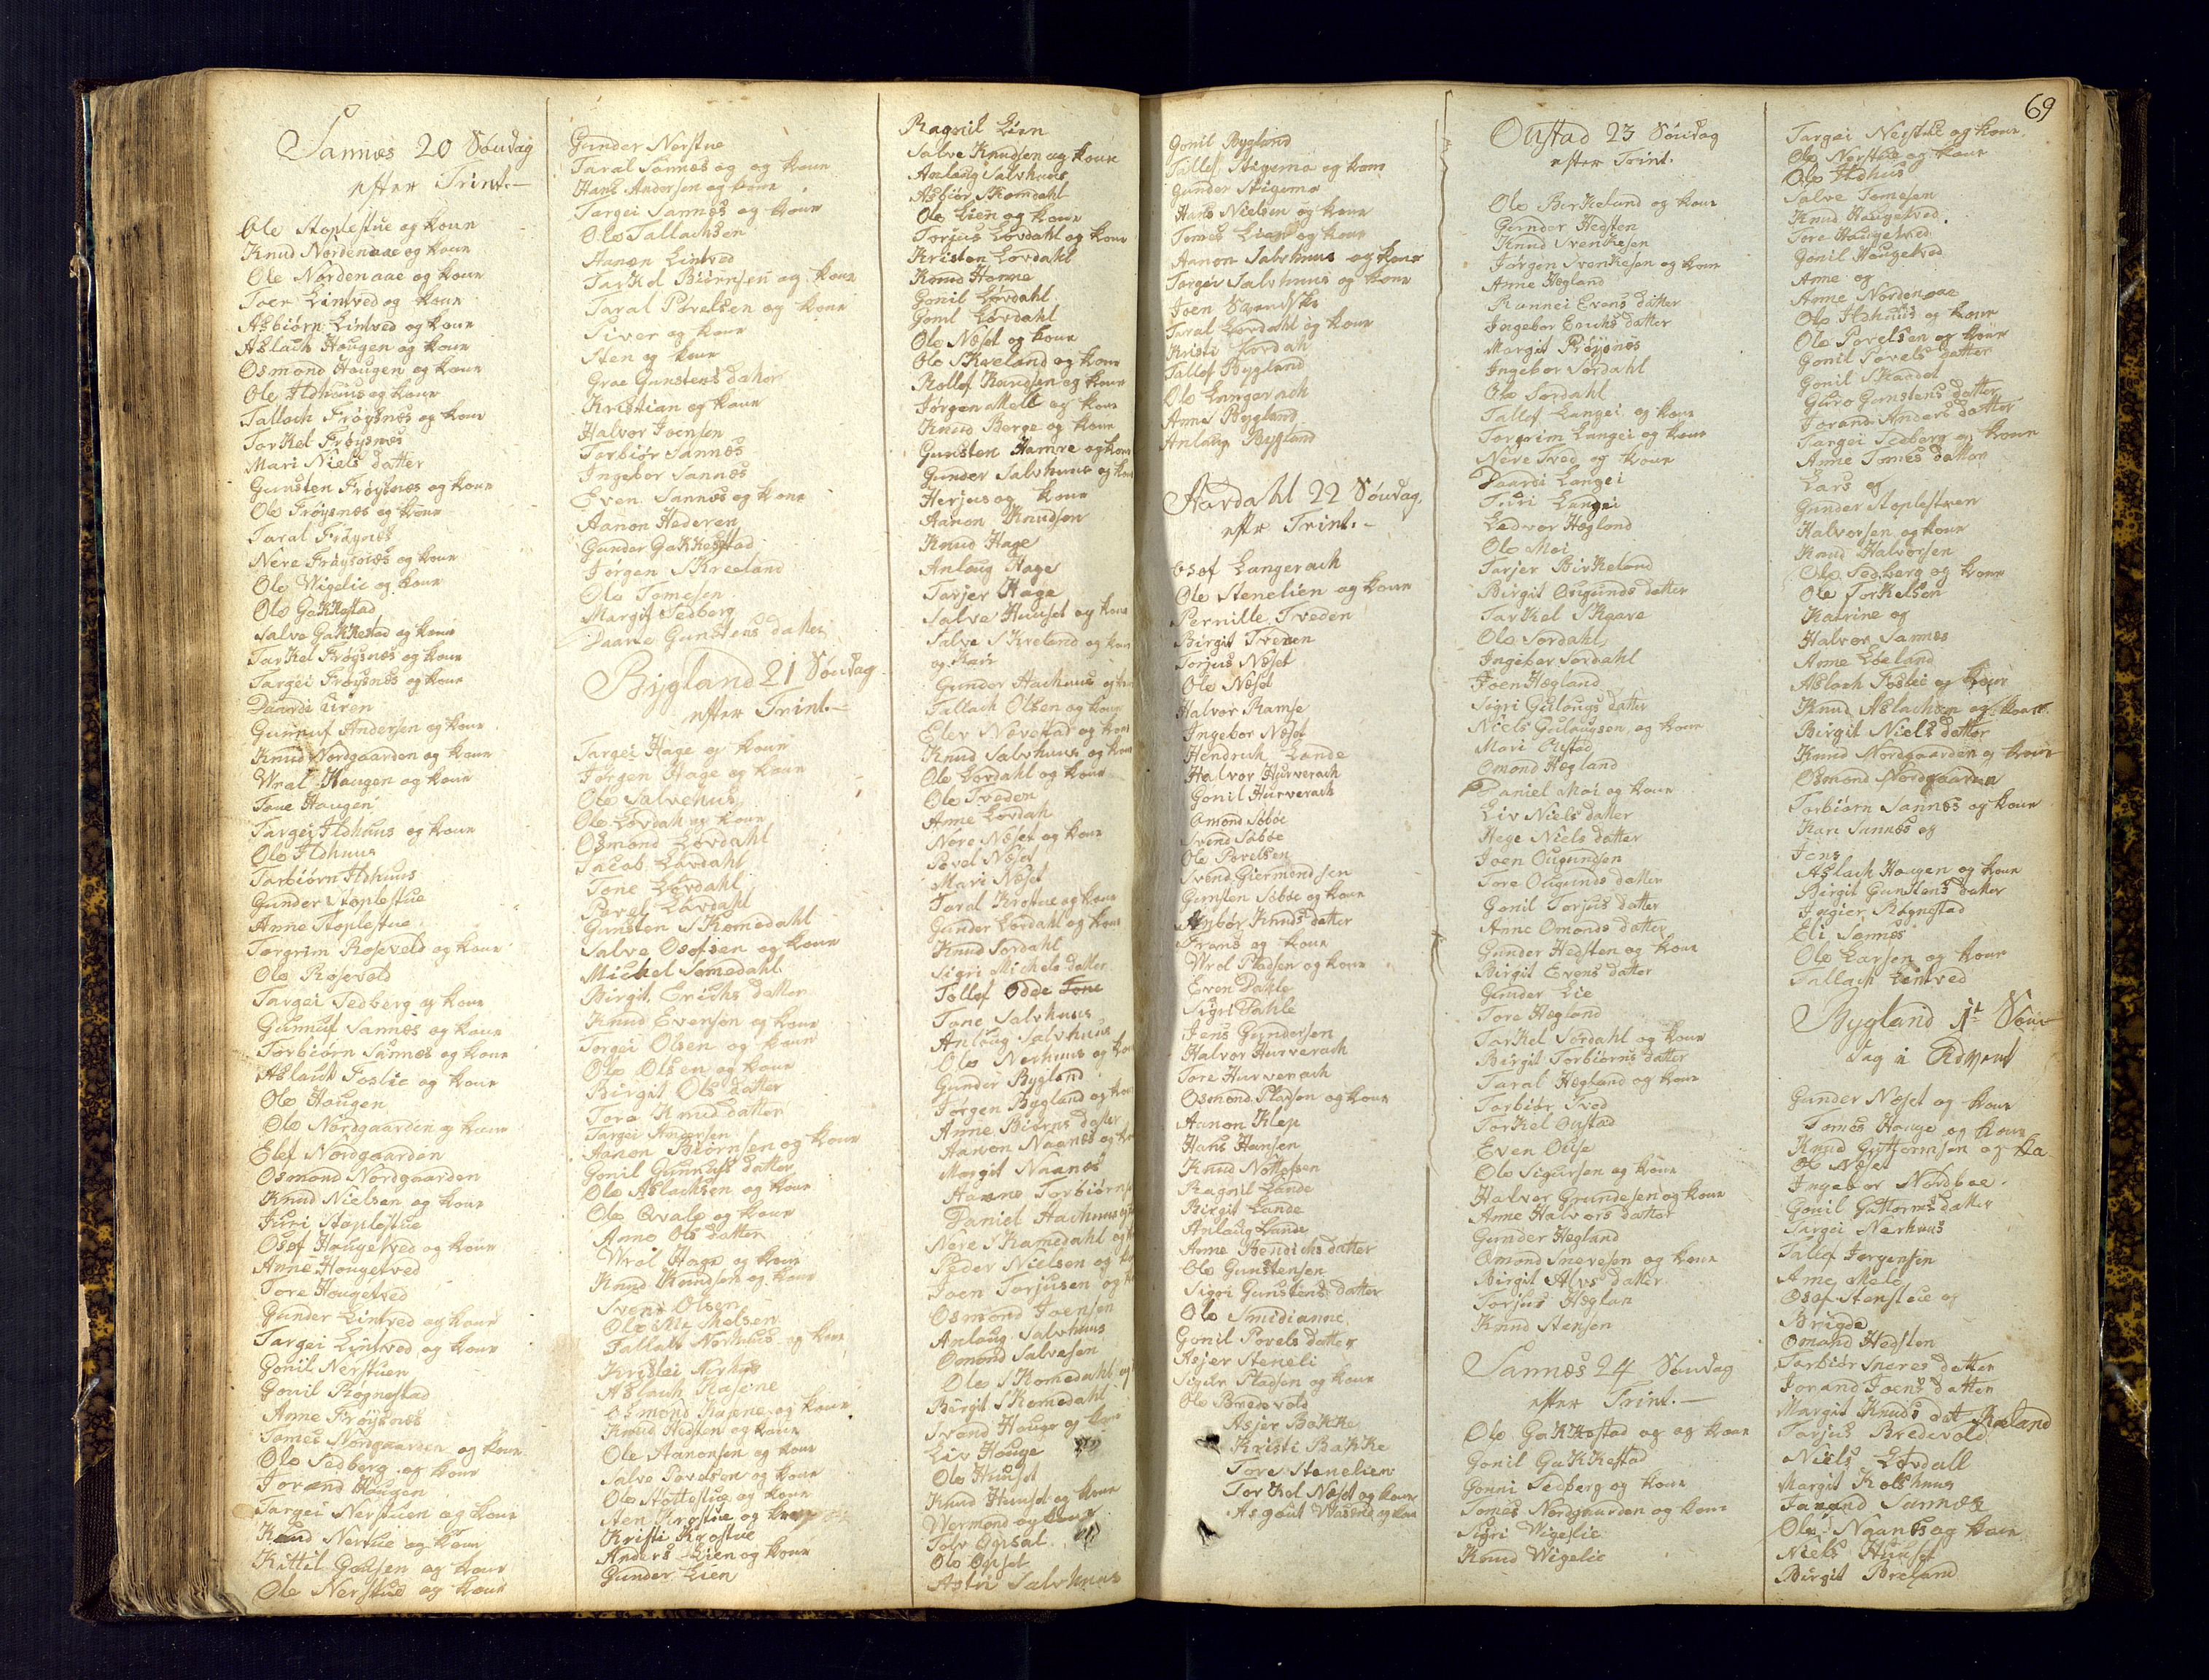 Sannes 20 Søndag
efter Trint.
Ole Stoplestue og kone
Knud Nordenaae og kone
Ole Nordenaae og kone
Joen Lintved og kone
Asbiørn Lintved og kone
Aslach Haugen og kone
Osmond Haugen og kone
Ole Ildhuus og kone
Tallach Frøysnes og kone
Torkel Frøysnes
Mari Niels datter
Gunsten Frøysnes og kone
Ole Frøysnes og kone
Taral Frøynes
Nere Frøysnes og kone
Ole Wigelie og kone
Ole Gakkestad
Salve Gakkestad og kone
Tarkel Frøysnes og kone
Targei Frøysnes og kone
Daardi Liren
Gunnuf Andersen og kone
Knud Nordgaarden og kone
Wral Haugen og kone
Tone Haugen
Targei Ildhuus og kone
Ole Ildhuus
Tarbiørn Ildhuus
Gunder Stoplestue
Anne Stoplestue
Torgrim Rosevold og kone
Ole Rosevold
Targei Sedberg og kone
Gunnuf Sannes og kone
Torbiørn Sannes og kone
Aslach Foslie og kone
Ole Haugen
Ole Nordgaarden og kone
Elef Nordgaarden
Osmond Nordgaarden
Knud Nielsen og kone
Juri Stoplestue
Osof Haugetved og kone
Anne Haugetved
Tore Haugetved
Gunder Lintved og kone
Targei Lintved og kone
Gonil Nerstuen
Gonil Rognestad
Anne Frøysnes
Tomes Nordgaarden og kone
Ole Sedberg og kone
Jorand Haugen
Targei Nerstuen og kone
Knud Nerstue og kone
Kittil Goesen og kone
Ole Nerstue og kone
Gunder Nerstue
Taral Sannes og og kone
Hans Andersen og kone
Targei Sannes og kone
Ole Tallachsen
Aanen Lintved
Tarkel Biørnsen og kone
Taral Povelsen og kone
Siver og kone
Sten og kone
Groe Gunstens datter
Kristian og kone
Halvor Joensen
Torbiør Sannes
Ingebor Sannes
Even Sannes og kone
Aanon Hederen
Gunder Gakkestad
Jørgen Skreeland
Ole Tomesen
Margit Sedberg
Daarte Gunstens datter
Bygland 21 Søndag
efter Trint.
Targei Hage og kone
Jørgen Hage og kone
Ole Salvehus
Ole Lovdahl og kone
Osmond Lovdahl
Jacob Lovdahl
Tone Lovdahl
Povel Lovdahl
Gunsten Skomedahl
Salve Osofsen og kone
Michel Somedahl
Birgit Erichs datter
Knud Evensen og kone
Torgei Olsen og kone
Ole Olsen og kone
Birgit Ols datter
Tora Knud datter
Targei Andersen
Aanon Biørnsen og kone
Gonil Gunnufs datter
Ole Aslachsen og kone
Ole Qvale og kone
Anne Ols datter
Wrol Hage og kone
Knud Knudsen og kone
Svend Olsen
Tallak Norhus og kone
Kristei Norhus
Aslach Kasene
Osmond Kasene og kone
Knud Hedsten og kone
Ole Aanonsen og kone
Salve Povelsen og kone
Ole Stottestue og kone
Sten Krostue og kone
Kristi Krostue
Anders Lien og kone
Gunder Lien
Ragnil Lien
Salve Knudsen og kone
Anlaug Salvhuus
Asbiør Skomdahl
Ole Lien og kone
Torjus Lovdahl og kone
Kristen Lovdahl
Knud Homme
Gonil Lovdahl
Gonil Lovdahl
Ole Neset og kone
Ole Skreland og kone
Rollef Knudsen og kone
Jørgen Mell og kone
Knud Berge og kone
Gunsten Hamre og kone
Gunder Salvhuus og kone
Herjus og kone
Aanon Knudsen
Knud Hage
Anlaug Hage
Tarjer Hage
Salve Hunset og kone
Salve Skreland og kone
og Kari
Gunder Aachuus og
Tallach Olsen og kone
Elev Nevestad og kone
Knud Salvhuus og kone
Ole Lovdahl og kone
Ole Treden
Anne Lovdah
Nere Neset og kone
Povel Neset
Mari Neset
Taral Krostue og kone
Gunder Lovdahl og kone
Knud Sordahl
Sigri Michels datter
Tollef Odde Tone
Tone Salvhuus
Anlaug Salvhuus
Ole Nerhuus og kone
Gunder Bygland
Jørgen Bygland og kone
Anne Biørns datter
Aanon Naanes og
Margit Naanes
Hanne Torbiørns
Daniel Aachuus og
Nere Skamedahl og
Peder Nielsen og
Joen Torjusen og
Osmond Joensen
Anlaug Salvhuus
Osmond Salvesen
Ole Skomedahl og
Birgit Skomedahl
Svend Hauge og kone
Liv Hauge
Ole Hunset
Knud Hunset og kone
Wermond og kone
Tolv Opsal
Ole Opset
Astri Salvhuus
Gonil Bygland
Tallef Stigemo og kone
Gunder Stigemo
Hans Nielsen og kone
Tomes Lien og kone
Aanon Salvhuus og kone
Targei Salvhuus og kone
Joen Svandske
Taral Lovdahl og kone
Kristi Lordah
Tallef Bygland
Ole Langerach
Anne Bygland
Anlaug Bygland
Aardahl 22 Søndag.
efter Trint.
Osof Langerach
Ole Stenelien og kone
Pernille Treden
Birgit Treden
Torjus Neset
Ole Neset
Halvor Ramse
Ingebor Neset
Hendrich Lande
Halvor Hurverach
Gonil Hurverach
Omond Sebøe
Svend Sebøe
Ole Povelsen
Svend Giermondsen
Gunsten Sebøe og kone
Anbør Knuds datter
Frans og kone
Wrol Pladsen og kone
Even Dahle
Sigri Dahle
Jens Gundersen
Halvor Hurverach
Tore Hurverach
Osmond Pladsen og kone
Aanon Klep
Hans Hansen
Knud Nottofsen
Ragnil Lande
Birgit Lande
Anlaug Lande
Anne Bendichs datter
Ole Gunstensen
Sigri Gunstens datter
Ole Smidianne
Gonil Povels datter
Asjer Steneli
Sigur Pladsen og kone
Ole Bredevold
Asjer Bakke
Kristi Bakke
Tore Stenelien
Torkel Neset og kone
Asgout Wasend og kone
Oustad 23 Søndag
efter Trint.
Ole Birkeland og kone
Gunder Hedsten
Knud Svenkesen
Jørgen Svenkesen og kone
Anne Hegland
Runnei Evens datter
Ingebor Erichs datter
Margit Frøysnes
Ingebor Sordahl
Ole Sordahl
Tallef Langei og kone
Torgrim Langei og kone
Nere Tved og kone
Daardi Langei
Turi Langei
Ledvor Hegland
Ole Moi
Tarjer Birkeland
Birgit Ougunds datter
Tarkel Skaare
Ole Sordahl
Ingebor Sordahl
Joen Hegland
Sigri Gulougs datter
Niels Gulougsen og kone
Mari Oustad
Omond Hegland
Daniel Moi og kone
Liv Niels datter
Hege Niels datter
Joen Ougundsen
Tore Ougunds datter
Gonil Torjus datter
Anne Omonds datter
Gunder Hedsten og kone
Birgit Evens datter
Gunder Lie
Tore Hegland
Torkel Sordahl og kone
Birgit Torbiørns datter
Taral Hegland og kone
Torbiør Tved
Torkel Oustad
Even Ouse
Ole Sigursen og kone
Halvor Grundesen og kone
Anne Halvors datter
Gunder Hegland
Omond Snevesen og kone
Birgit Alvs datter
Torjus Heglan
Knud Stensen
Sannes 24 Søndag
efter Trint.
Ole Gakkestad og og kone
Gonil Gakkestad
Gonni Sedberg og kone
Tomes Nordgaarden og kone
Sigri Wigelie
Knud Wigelie
69
Targei Nerstue og kone
Ole Nerstue og kone
Ole Ildhuus
Salve Tomesen
Knud Haugetved
Tore Haugetved
Gonil Haugetved
Anne og
Anne Nordenaae
Ole Ildhuus og kone
Ole Povelsen og kone
Gonil Tovels datter
Gonil Skaadel
Groe Gunstens datter
Jorand Anders datter
Targei Sedberg og kone
Anne Tomes datter
Lars og
Gunder Stoplestuen
Halvorsen og kone
Knud Halvorsen
Ole Sedberg og kone
Ole Torkelsen
Katrine og
Halvor Sannes
Anne Løeland
Aslach Foslie og kone
Knud Aslachsen og kone
Birgit Niels datter
Knud Nordgaarden og kone
Osmond Nordgaarden
Torbiørn Sannes og kone
Kari Sannes og
Jens
Aslach Haugen og kone
Birgit Gunstens datter
Rognestad
Eli Sannes
Ole Larsen og kone
Tallach Lintved
Bygland 1t Søn-
dag i Advent
Gunder Neset og kone
Tomes Hauge og kone
Knud Guttormsen og ko
Ole Neset
Ingebor Nordboe
Gonil Guttorms datter
Targei Nerhuus
Tallef Jørgensen
Arne Mele
Osof Stenslie og
Brigde
Omond Hedsten
Torbiør Sneres datter
Jorand Joens datter
Margit Knuds dat Røeland
Torjus Bredevold
Niels Lovdall
Margit Kolshuus
Jorand Sannes
Ole Naanes og kone
Niels Hunset
Birgit Breland